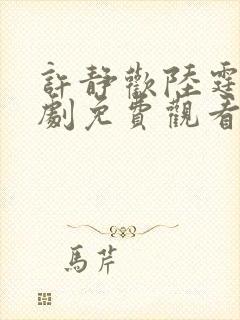 許靜歡陸霆
劇免費觀看
馬芹